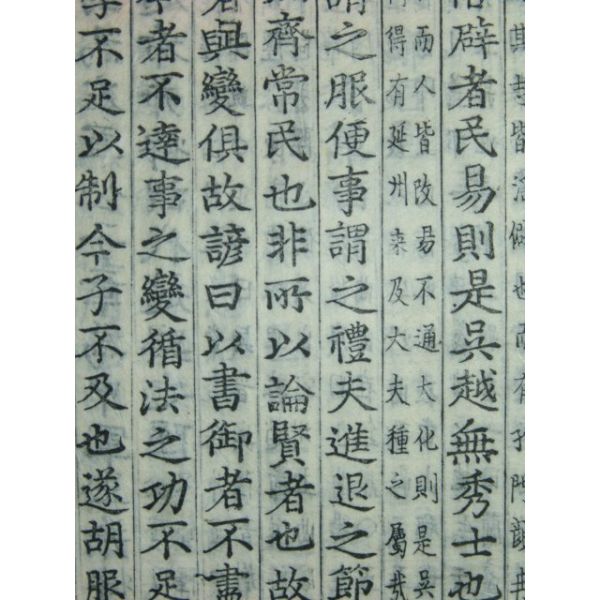 其志皆淫僻也而有孔門顏冉
辟者民易則是吳越無秀士也
而人皆改易不通大化則是吳
得有延州来及大夫種之屬哉
謂之服便事謂之禮夫進退之節
齊常民也非所以論賢者也故
者與變俱故諺曰以書御者不盡
者不達事之變循法之功不足
學不足以制今子不及也遂胡服